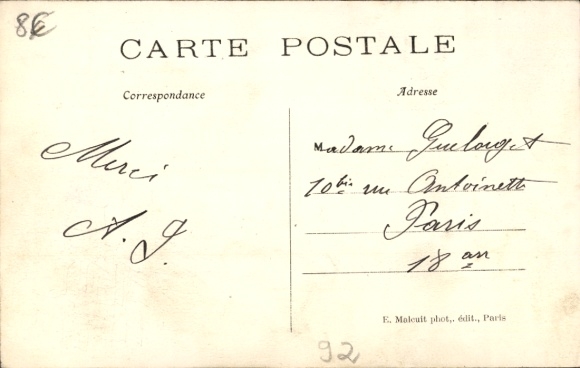 8€
CARTE POSTALE
Correspondance
Adresse
Merci
A. J.
Madame Guelorget
10bis rue Antoinette
Paris
18 arr
E. Malcuit phot,. édit., Paris
92